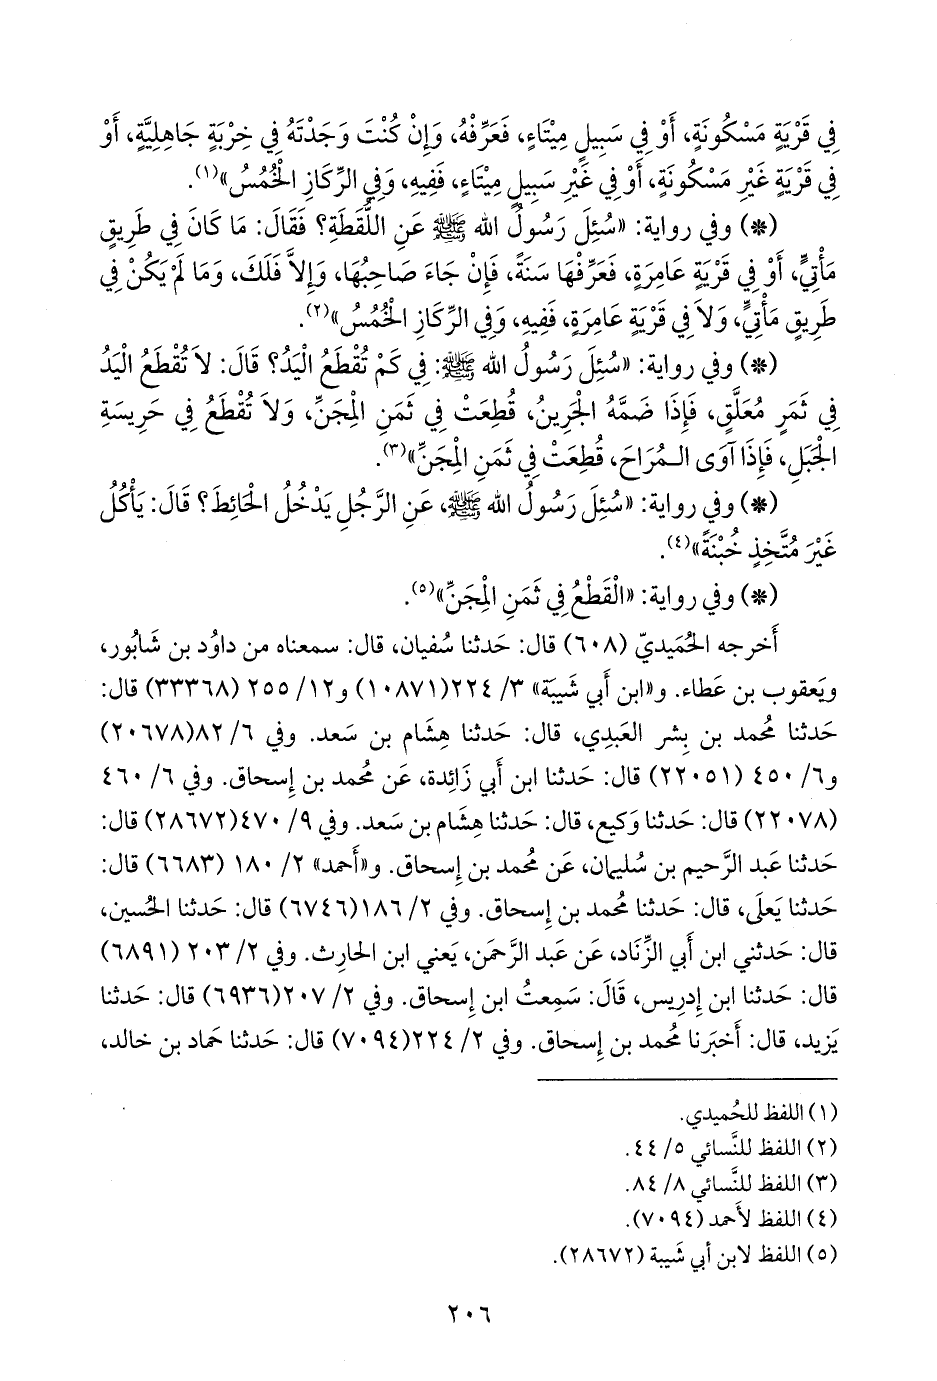 فِي قَرْيَةٍ مَسْكُونَةٍ، أَوْ فِي سَبِيلٍ مِيْتَاءٍ، فَعَرِّفْهُ، وَإِنْ كُنْتَ وَجَدْتَهُ فِي خِرْبَةٍ جَاهِلِيَّةٍ، أَوْ
فِي قَرْيَةٍ غَيْرِ مَسْكُونَةٍ، أَوْ فِي غَيْرِ سَبِيلٍ مِيْتَاءٍ، فَفِيهِ، وَفِي الرِّكَازِ الْخُمُسُ»(١).
(*) وفي رواية: «سُئِلَ رَسُولُ الله ﷺ عَنِ اللُّقَطَةِ؟ فَقَالَ: مَا كَانَ فِي طَرِيقٍ
مَأْتِيٍّ، أَوْ فِي قَرْيَةٍ عَامِرَةٍ، فَعَرِّفْهَا سَنَةً، فَإِنْ جَاءَ صَاحِبُهَا، وَإِلاَّ فَلَكَ، وَمَا لَمْ يَكُنْ فِي
طَرِيقٍ مَأْتِيٍّ، وَلاَ فِي قَرْيَةٍ عَامِرَةٍ، فَفِيهِ، وَفِي الرِّكَازِ الْخُمُسُ»(٢).
(*) وفي رواية: «سُئِلَ رَسُولُ الله ﷺ: فِي كَمْ تُقْطَعُ الْيَدُ؟ قَالَ: لاَ تُقْطَعُ الْيَدُ
فِي ثَمَرٍ مُعَلَّقٍ، فَإِذَا ضَمَّهُ الْجَرِينُ، قُطِعَتْ فِي ثَمَنِ الْمِجَنِّ، وَلاَ تُقْطَعُ فِي حَرِيسَةِ
الْجَبَلِ، فَإِذَا آوَى الْـمُرَاحَ، قُطِعَتْ فِي ثَمَنِ الْمِجَنِّ»(٣).
(*) وفي رواية: «سُئِلَ رَسُولُ الله ﷺ، عَنِ الرَّجُلِ يَدْخُلُ الْحَائِطَ؟ قَالَ: يَأْكُلُ
غَيْرَ مُتَّخِذٍ خُبْنَةً»(٤).
(*) وفي رواية: «الْقَطْعُ فِي ثَمَنِ الْمِجَنِّ»(٥).
أَخرجه الحُمَيديّ (٦٠٨) قال: حَدثنا سُفيان، قال: سمعناه من داوُد بن شَابُور،
ويَعقوب بن عَطاء. و«ابن أَبي شَيبة» ٣/ ٢٢٤(١٠٨٧١) و١٢/ ٢٥٥ (٣٣٣٦٨) قال:
حَدثنا مُحمد بن بِشر العَبدِي، قال: حَدثنا هِشَام بن سَعد. وفي ٦/ ٨٢(٢٠٦٧٨)
و٦/ ٤٥٠ (٢٢٠٥١) قال: حَدثنا ابن أَبي زَائِدة، عَن مُحمد بن إِسحاق. وفي ٦/ ٤٦٠
(٢٢٠٧٨) قال: حَدثنا وَكيع، قال: حَدثنا هِشَام بن سَعد. وفي ٩/ ٤٧٠(٢٨٦٧٢) قال:
حَدثنا عَبد الرَّحيم بن سُليمان، عَن مُحمد بن إِسحاق. و«أَحمد» ٢/ ١٨٠ (٦٦٨٣) قال:
حَدثنا يَعلَى، قال: حَدثنا مُحمد بن إِسحاق. وفي ٢/ ١٨٦(٦٧٤٦) قال: حَدثنا الحُسين،
قال: حَدثني ابن أَبي الزِّنَاد، عَن عَبد الرَّحمَن، يَعني ابن الحارِث. وفي ٢/ ٢٠٣ (٦٨٩١)
قال: حَدثنا ابن إِدريس، قَالَ: سَمِعتُ ابن إِسحاق. وفي ٢/ ٢٠٧(٦٩٣٦) قال: حَدثنا
يَزيد، قال: أَخبَرنا مُحمد بن إِسحاق. وفي ٢/ ٢٢٤(٧٠٩٤) قال: حَدثنا حَماد بن خالد،
(١) اللفظ للحُميدي.
(٢) اللفظ للنَّسائي ٥/ ٤٤.
(٣) اللفظ للنَّسائي ٨/ ٨٤.
(٤) اللفظ لأَحمد (٧٠٩٤).
(٥) اللفظ لابن أَبي شَيبة (٢٨٦٧٢).
٢٠٦